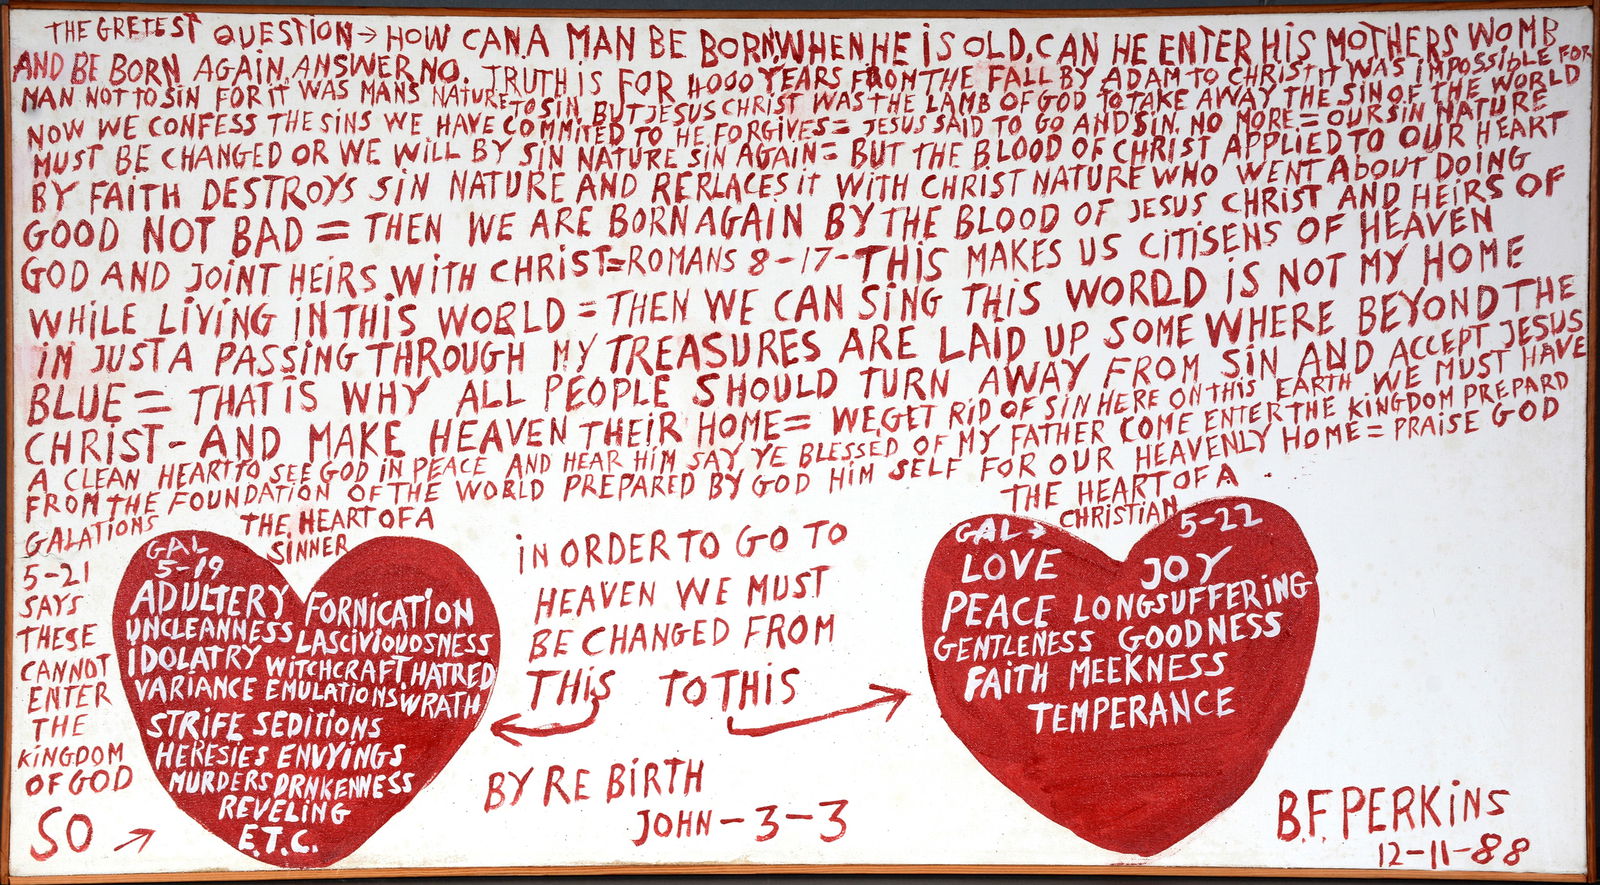 THE GRETEST QUESTION → HOW CAN.A MAN BE BORN.WHEN HE iS OLD. CAN HE ENTER HiS MOTHERS WOMB
AND BE BORN AGAIN, ANSWER NO. TRUTH iS FOR 4000 YEARS FROM THE FALL BY ADAM TO CHRIST iT WAS IMPOSSIBLE FOR
MAN NOT TO SIN FOR IT WAS MANS NATURE TO SIN. BUT JESUS CHRIST WAS THE LAMB OF GOD TO TAKE AWAY THE SIN OF THE WORLD
NOW WE CONFESS THE SINS WE HAVE COMMITED TO HE FORGIVES = JESUS SAID TO GO AND SIN NO MORE = OUR SIN NATURE
MUST BE CHANGED OR WE WILL BY SIN NATURE SIN AGAIN = BUT THE BLOOD OF CHRIST APPLIED TO OUR HEART
BY FAITH DESTROYS SIN NATURE AND RERLACES iT WITH CHRIST NATURE WHO WENT ABOUT DOING
GOOD NOT BAD = THEN WE ARE BORN AGAIN BY THE BLOOD OF JESUS CHRIST AND HEIRS OF
GOD AND JOINT HEIRS WITH CHRIST = ROMANS 8-17- THIS MAKES US CITISENS OF HEAVEN
WHILE LIVING IN THIS WORLD = THEN WE CAN SING THIS WORLD IS NOT MY HOME
iM JUST A PASSING THROUGH MY TREASURES ARE LAID UP SOME WHERE BEYOND THE
BLUE = THAT IS WHY ALL PEOPLE SHOULD TURN AWAY FROM SIN AND ACCEPT JESUS
CHRIST - AND MAKE HEAVEN THEIR HOME = WE GET RID OF SIN HERE ON THIS EARTH WE MUST HAVE
A CLEAN HEART TO SEE GOD IN PEACE AND HEAR HIM SAY YE BLESSED OF MY FATHER COME ENTER THE KINGDOM PREPARD
FROM THE FOUNDATION OF THE WORLD PREPARED BY GOD HIM SELF FOR OUR HEAVENLY HOME = PRAISE GOD
GALATIONS
5-21
SAYS
THESE
CANNOT
ENTER
THE
KiNGDOM
OF GOD
SO →
THE HEART OF A
SINNER
GAL
5-19
ADULTERY FORNICATION
UNCLEANNESS LASCIVIOUDSNESS
iDOLATRY WITCHCRAFT HATRED
VARIANCE EMULATIONS WRATH
STRIFE SEDITIONS
HERESIES ENVYINGS
MURDERS DRNKENNESS
REVELING
E.T.C.
iN ORDER TO GO TO
HEAVEN WE MUST
BE CHANGED FROM
THiS TO THIS
BY RE BIRTH
JOHN-3-3
THE HEART OF A
CHRISTIAN
GAL → 5-22
LOVE JOY
PEACE LONGSUFFERING
GENTLENESS GOODNESS
FAITH MEEKNESS
TEMPERANCE
B.F. PERKINS
12-11-88